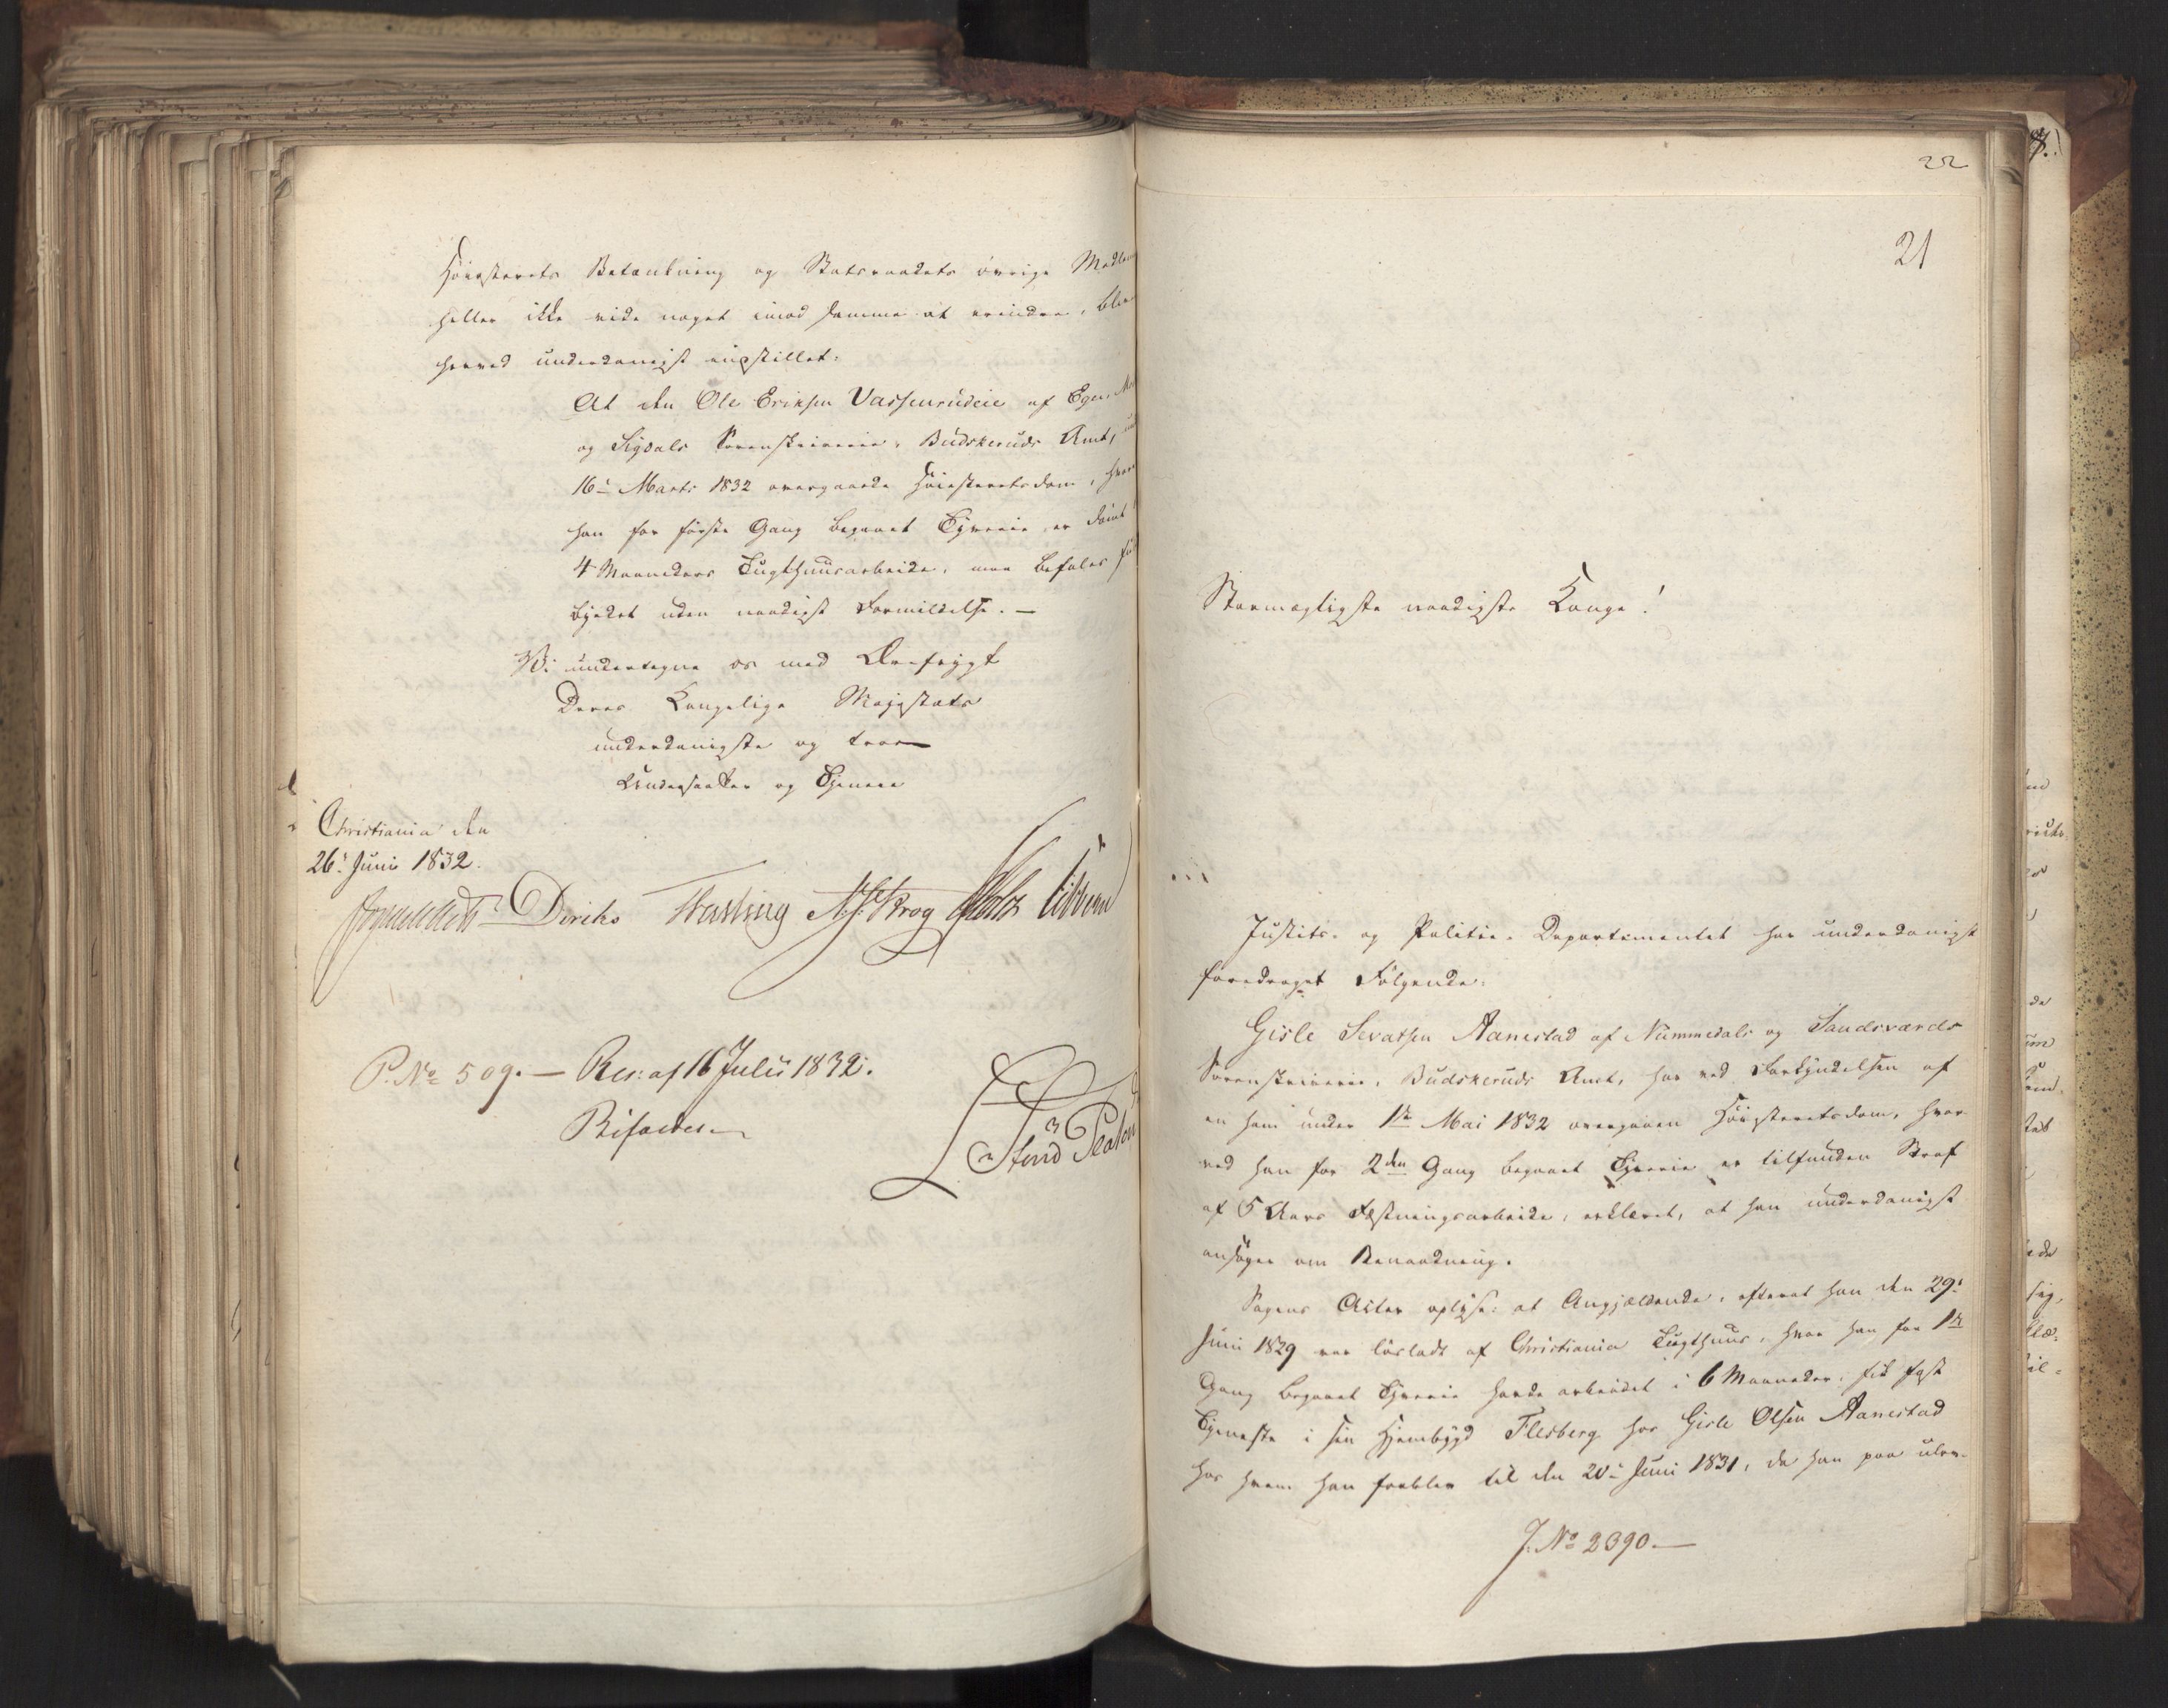 Høiesterets Betænkning og Statsraadets øvrige Medlem
heller ikke vide noget imod samme at erindre, bliver
herved underdanigst indstillet:
At den Ole Eriksen Vassenrudeie af Eger, Mo
og Sigdals Sorenskriverie, Budskeruds Amt, und
16de Marts 1832 overgaaede Høiesteretsdom, hvor
han for første Gang begaaet Tyverie er dømt
4 Maaneders Tugthuusarbeide, maa befales ful
byrdet uden naadigst Formildelse. —
Vi undertegne os med Ærefrygt
Deres Kongelige Majestæts
underdanigste og troe
Undersaatter og Tjenere
Christiania den
26de Juni 1832.
Diriks Fasting Krog Holst Vibben
P. No 509. — Res: af 16 Julii 1832.
Bifaldes
22
21
Stormægtigste naadigste Konge!
Justits- og Politie-Departementet har underdanigst
foredraget Følgende:
Gisle Sevatsen Aanestad af Nummedals og Sandsværds
Sorenskriverie, Budskeruds Amt, har ved Forkyndelsen af
en ham under 1ste Mai 1832 overgaaen Høiesteretsdom, hvor-
ved han for 2den Gang begaaet Tyverie er tilfunden Straf
af 5 Aars Fæstningsarbeide, erklæret, at han underdanigst
ansøger om Benaadning.
Sagens Acter oplyse: at Angjældende, efterat han den 29de
Juni 1829 var løsladt af Christiania Tugthuus, hvor han for 1ste
Gang begaaet Tyverie havde arbeidet i 6 Maaneder, fik fast
Tjeneste i sin Hjembygd Flesberg hos Gisle Olsen Aanestad
hos hvem han forblev til den 20de Juni 1831, da han paa ulov-
J. No 2390. —